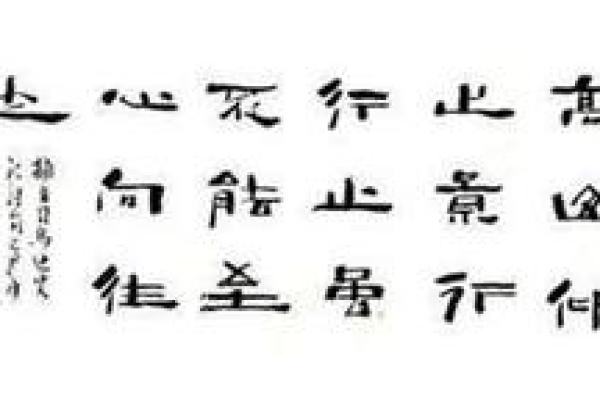 高山仰
止景行
行止虽
不能至
心向往
之